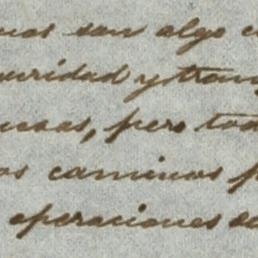 son algo
uridad y tran
pero tod
os caminos
operaciones